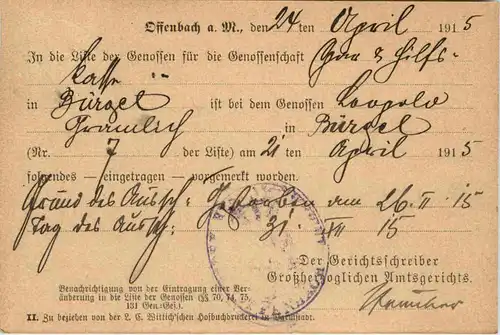 Offenbach a. M., den 24ten April 1915
In die Liste der Genossen für die Genossenschaft Spar & Hilfs-
kasse
in Bürgel ist bei dem Genossen Leopold
Gramlich in Bürgel
(Nr. 7 der Liste) am 21ten April 1915
folgendes — eingetragen — vorgemerkt worden.
Grund des Aussch: Gestorben am 26. II. 15
Tag des Aussch: 31. XII 15
Der Gerichtsschreiber
Großherzoglichen Amtsgerichts.
Benachrichtigung von der Eintragung einer Ver-
änderung in die Liste der Genossen (§§ 70, 74, 75,
131 Gen.-Ges.).
II. Zu beziehen von der L. C. Wittich'schen Hofbuchdruckerei in Darmstadt.